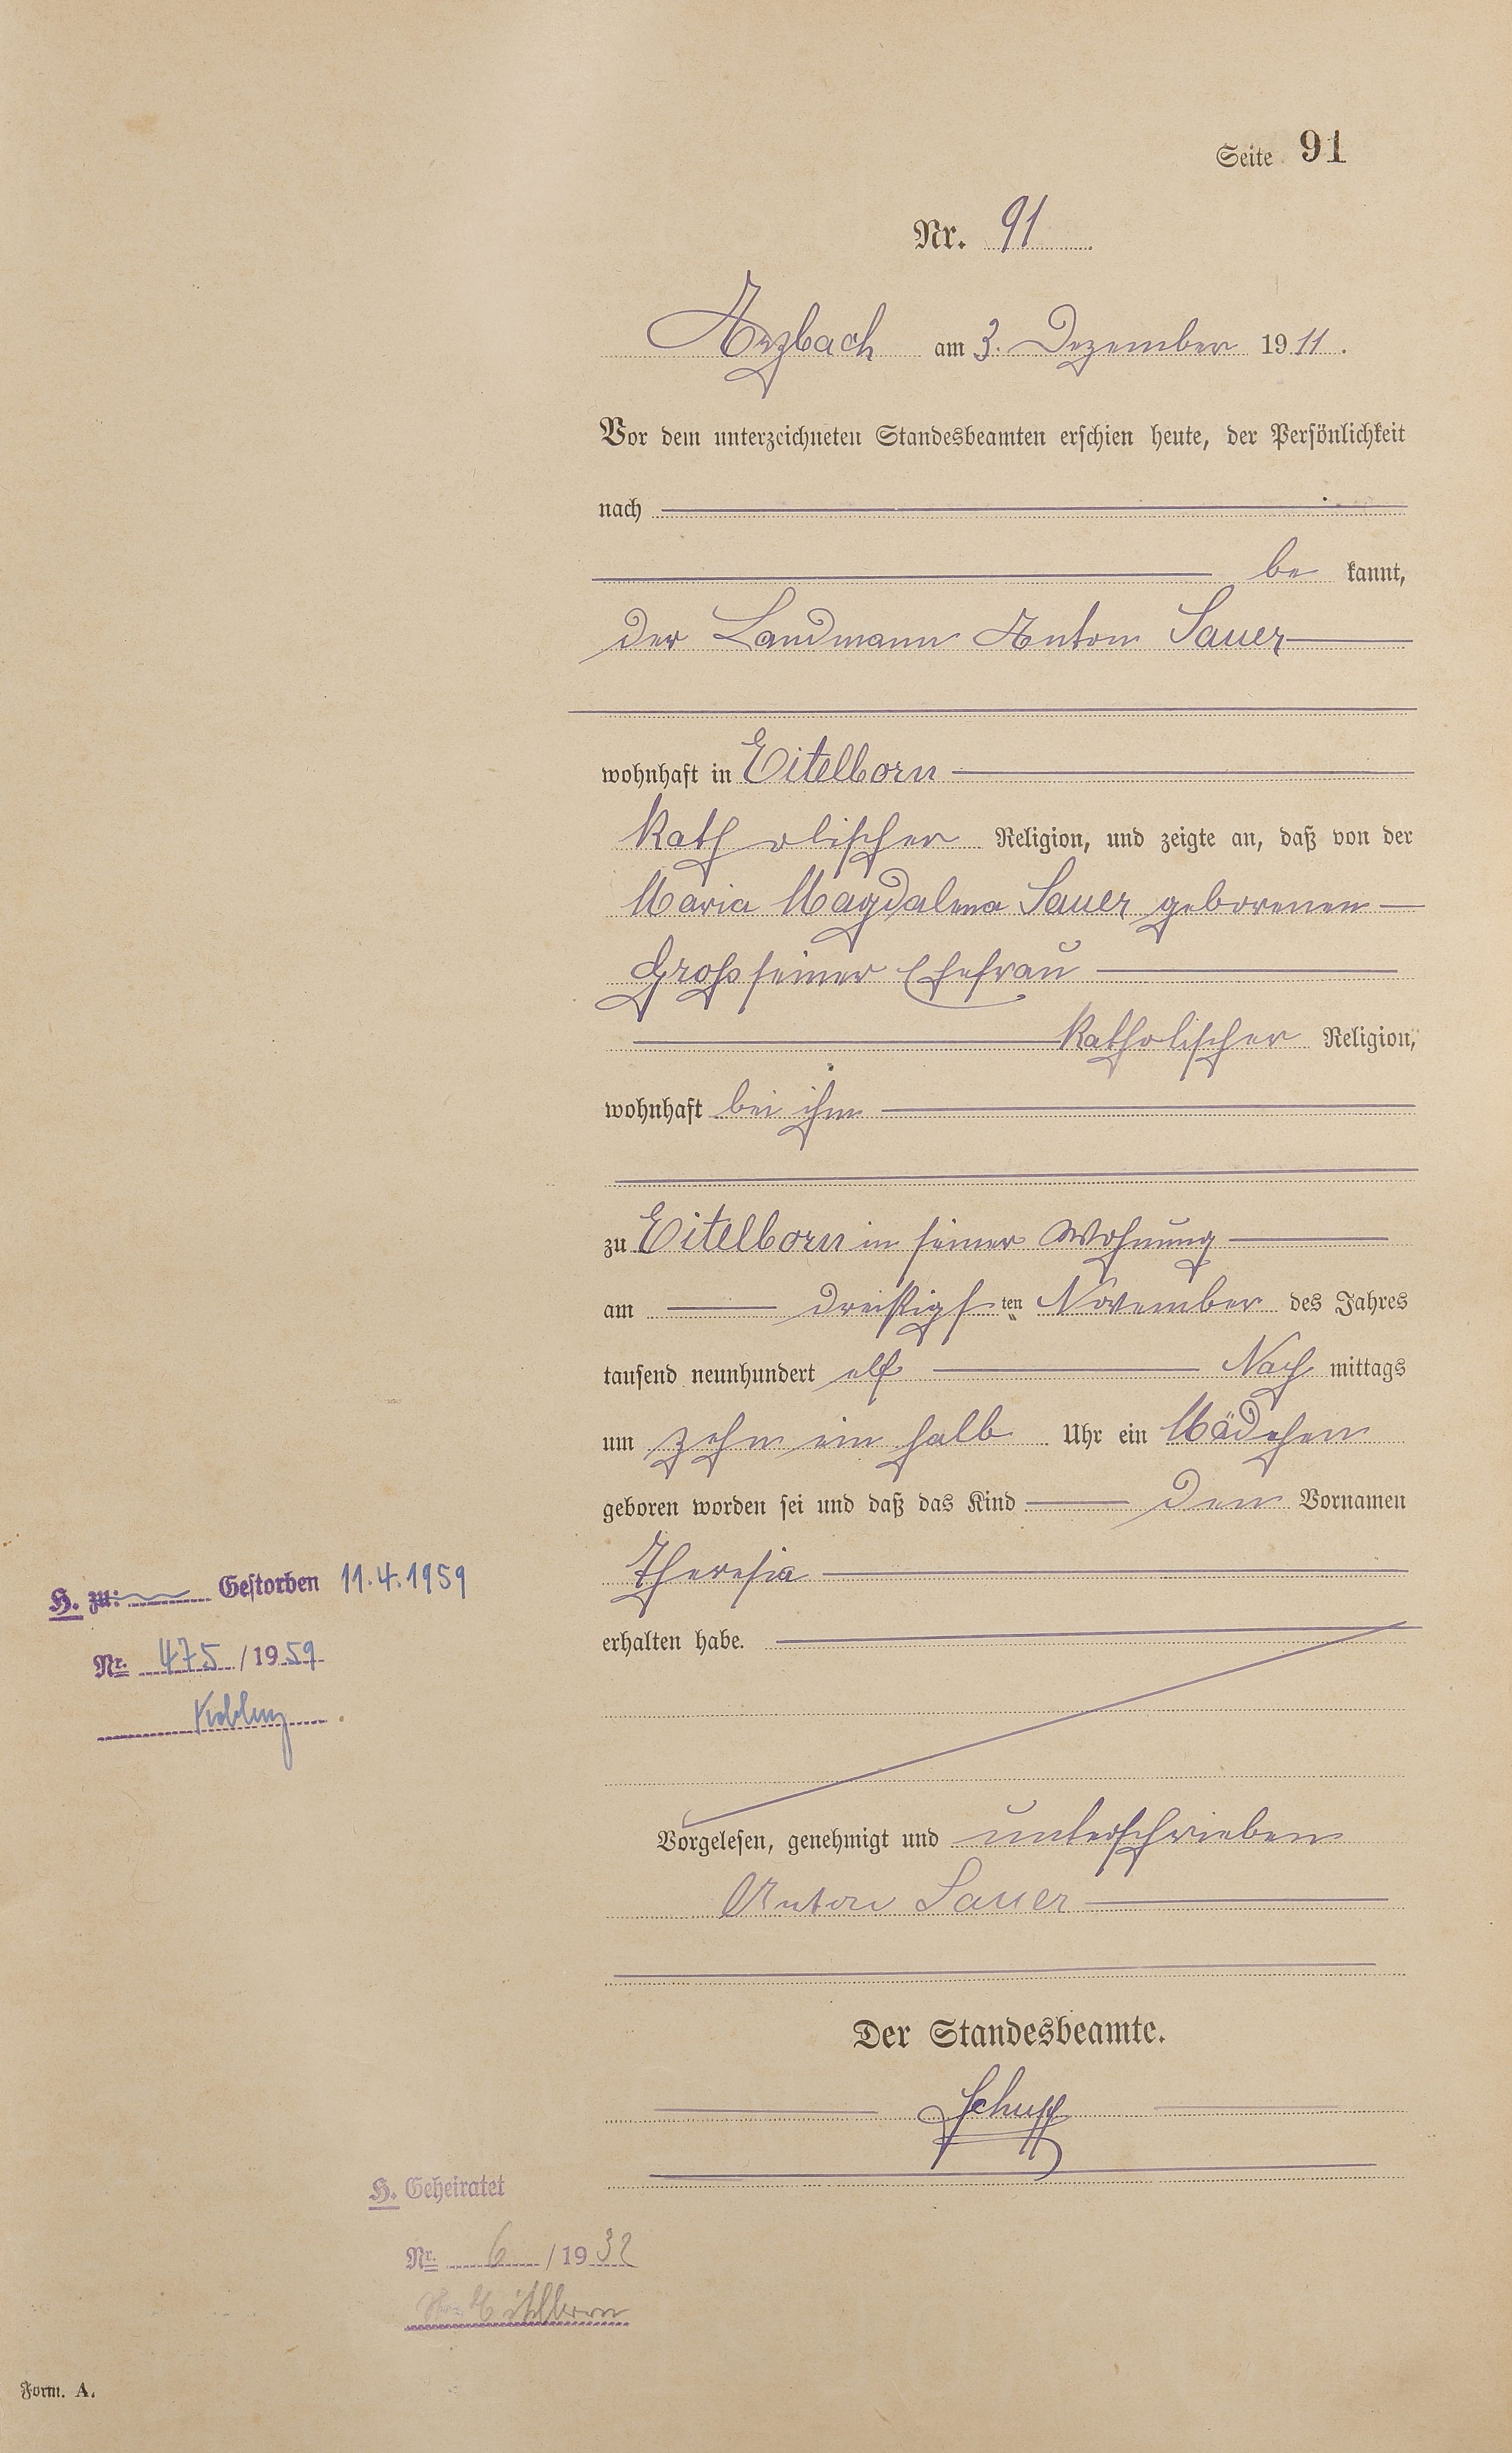 Seite 91
Nr. 91
Arzbach am 3. Dezember 1911.
Vor dem unterzeichneten Standesbeamten erschien heute, der Persönlichkeit
nach
be kannt,
der Landmann Anton Sauer
wohnhaft in Eitelborn
katholischer Religion, und zeigte an, daß von der
Maria Magdalena Sauer geborenen
Groß seiner Ehefrau
katholischer Religion,
wohnhaft bei ihm
zu Eitelborn in seiner Wohnung
am dreißigsten November des Jahres
tausend neunhundert elf Nachmittags
um zehn ein halb Uhr ein Mädchen
geboren worden sei und daß das Kind den Vornamen
Theresia
erhalten habe.
H. zu: Gestorben 11.4.1959
Nr. 475/1959
Koblenz
Vorgelesen, genehmigt und unterschrieben
Anton Sauer
Der Standesbeamte.
Schupp
H. Geheiratet
Nr. 6/1932
Eitelborn
Form. A.